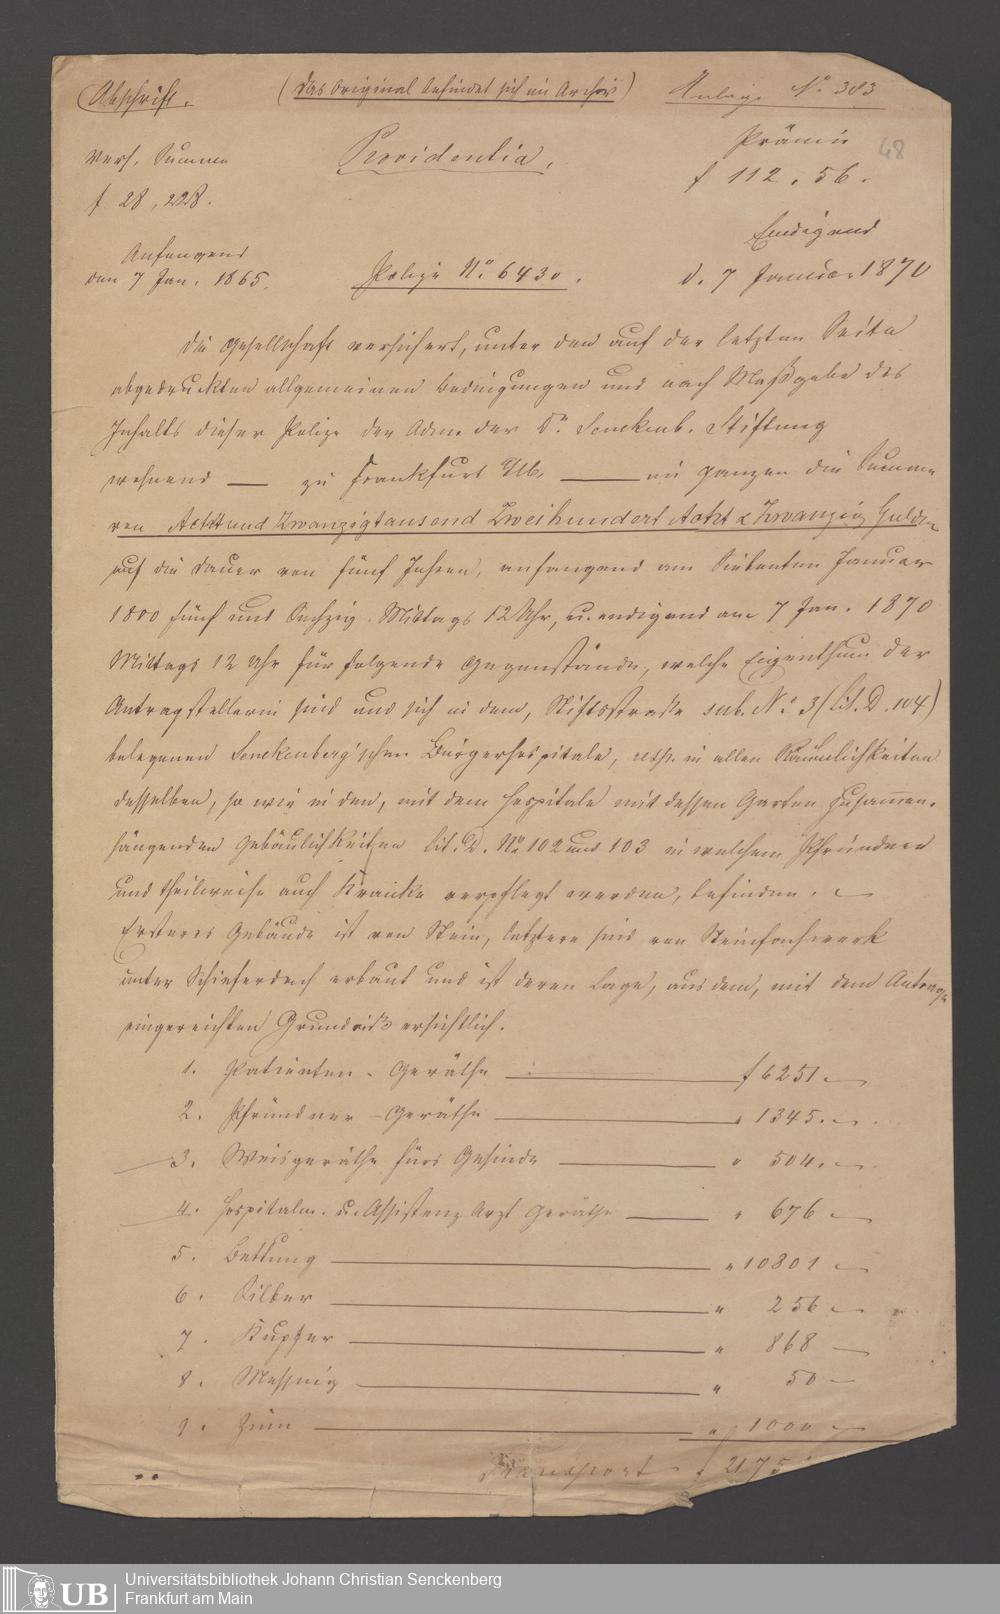 Abschrift. (Das Original befindet sich im Archiv) Anlage No 383
48
Vers. Summe Providentia. Prämie
f 28,228. f 112.56.
Anfangend Endigend
den 7 Jan. 1865. Polize No. 6430. d. 7 Januar 1870
Die Gesellschaft versichert, unter den auf der letzten Seite
abgedruckten allgemeinen Bedingungen und nach Maßgabe des
Inhalts dieser Polize der Adm. der Dr. Senckenb. Stiftung
wohnend — zu Frankfurt a/M. — im ganzen die Summe
von Acht und Zwanzigtausend Zweihundert Acht & Zwanzig Gulden
auf die Dauer von fünf Jahren, anfangend am Siebenten Januar
1800 fünf und Sechzig Mittags 12 Uhr, u. endigend am 7 Jan. 1870
Mittags 12 Uhr für folgende Gegenstände, welche Eigenthum der
Antragstellerin sind und sich in dem, Stiftsstraße sub. No. 3 (Lit. D. 104)
belegenen Senckenberg'schen Bürgerhospitale, resp. in allen Räumlichkeiten
desselben, so wie in den, mit dem Hospitale und dessen Garten zusammen-
hängenden Gebäulichkeiten Lit. D. No. 102 und 103 in welchem Pfründner
und theilweise auch Kranke verpflegt werden, befinden.
Ersteres Gebäude ist von Stein, letztere sind von Steinfachwerk
unter Schieferdach erbaut und ist deren Lage, aus dem, mit dem Antrage
eingereichten Grundriß ersichtlich.
1. Patienten-Geräthe — f 6251 —
2. Pfründner-Geräthe — " 1345. —
3. Weisgeräthe fürs Gesinde — " 504. —
4. Hospitalm. u. Assistenz Arzt Geräthe — " 676 —
5. Bettung — " 10801 —
6. Silber — " 256 —
7. Kupfer — " 868 —
8. Messing — " 50 —
9. Zinn — " 1000 —
Transport f 2175
UB Universitätsbibliothek Johann Christian Senckenberg
Frankfurt am Main